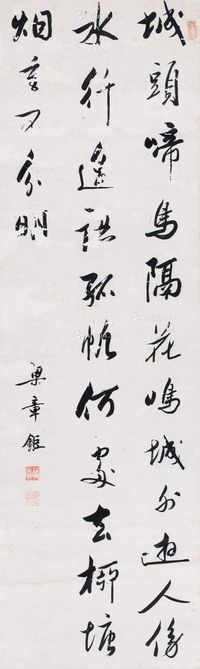 城頭啼鳥隔花鳴城外遊人傍
水行遙認孤帆何處去柳塘
烟重不分明
梁章鉅